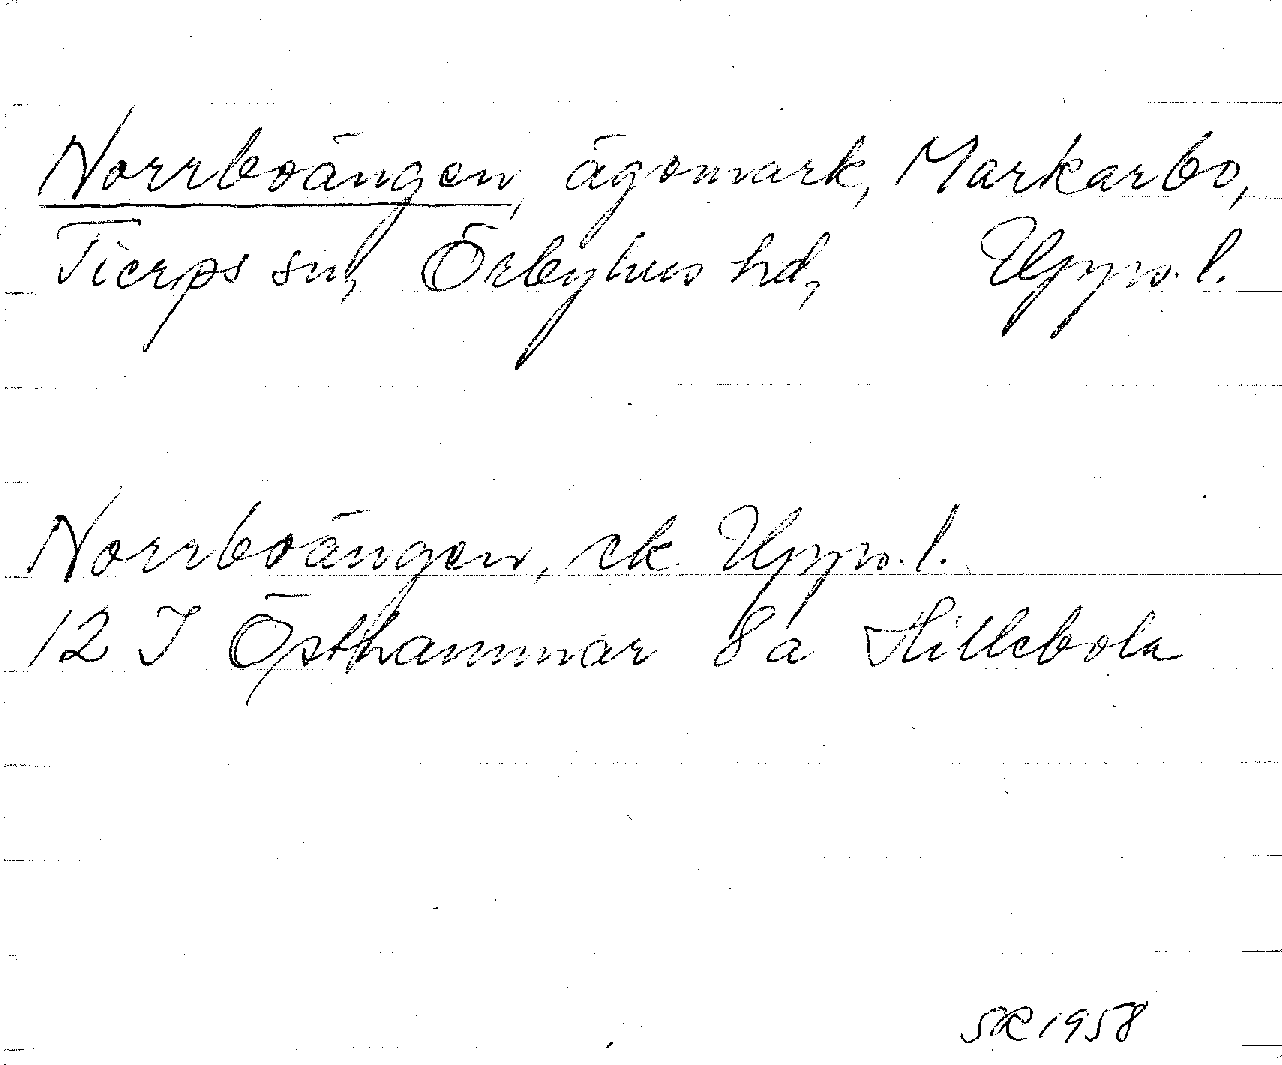 Norrboängen, ägomark, Markarbo,
Tierps sn, Örbyhus hd, Uppl.
Norrboängen, ek Uppl.
12 I Östhammar 8a Hillebola
SR 1958